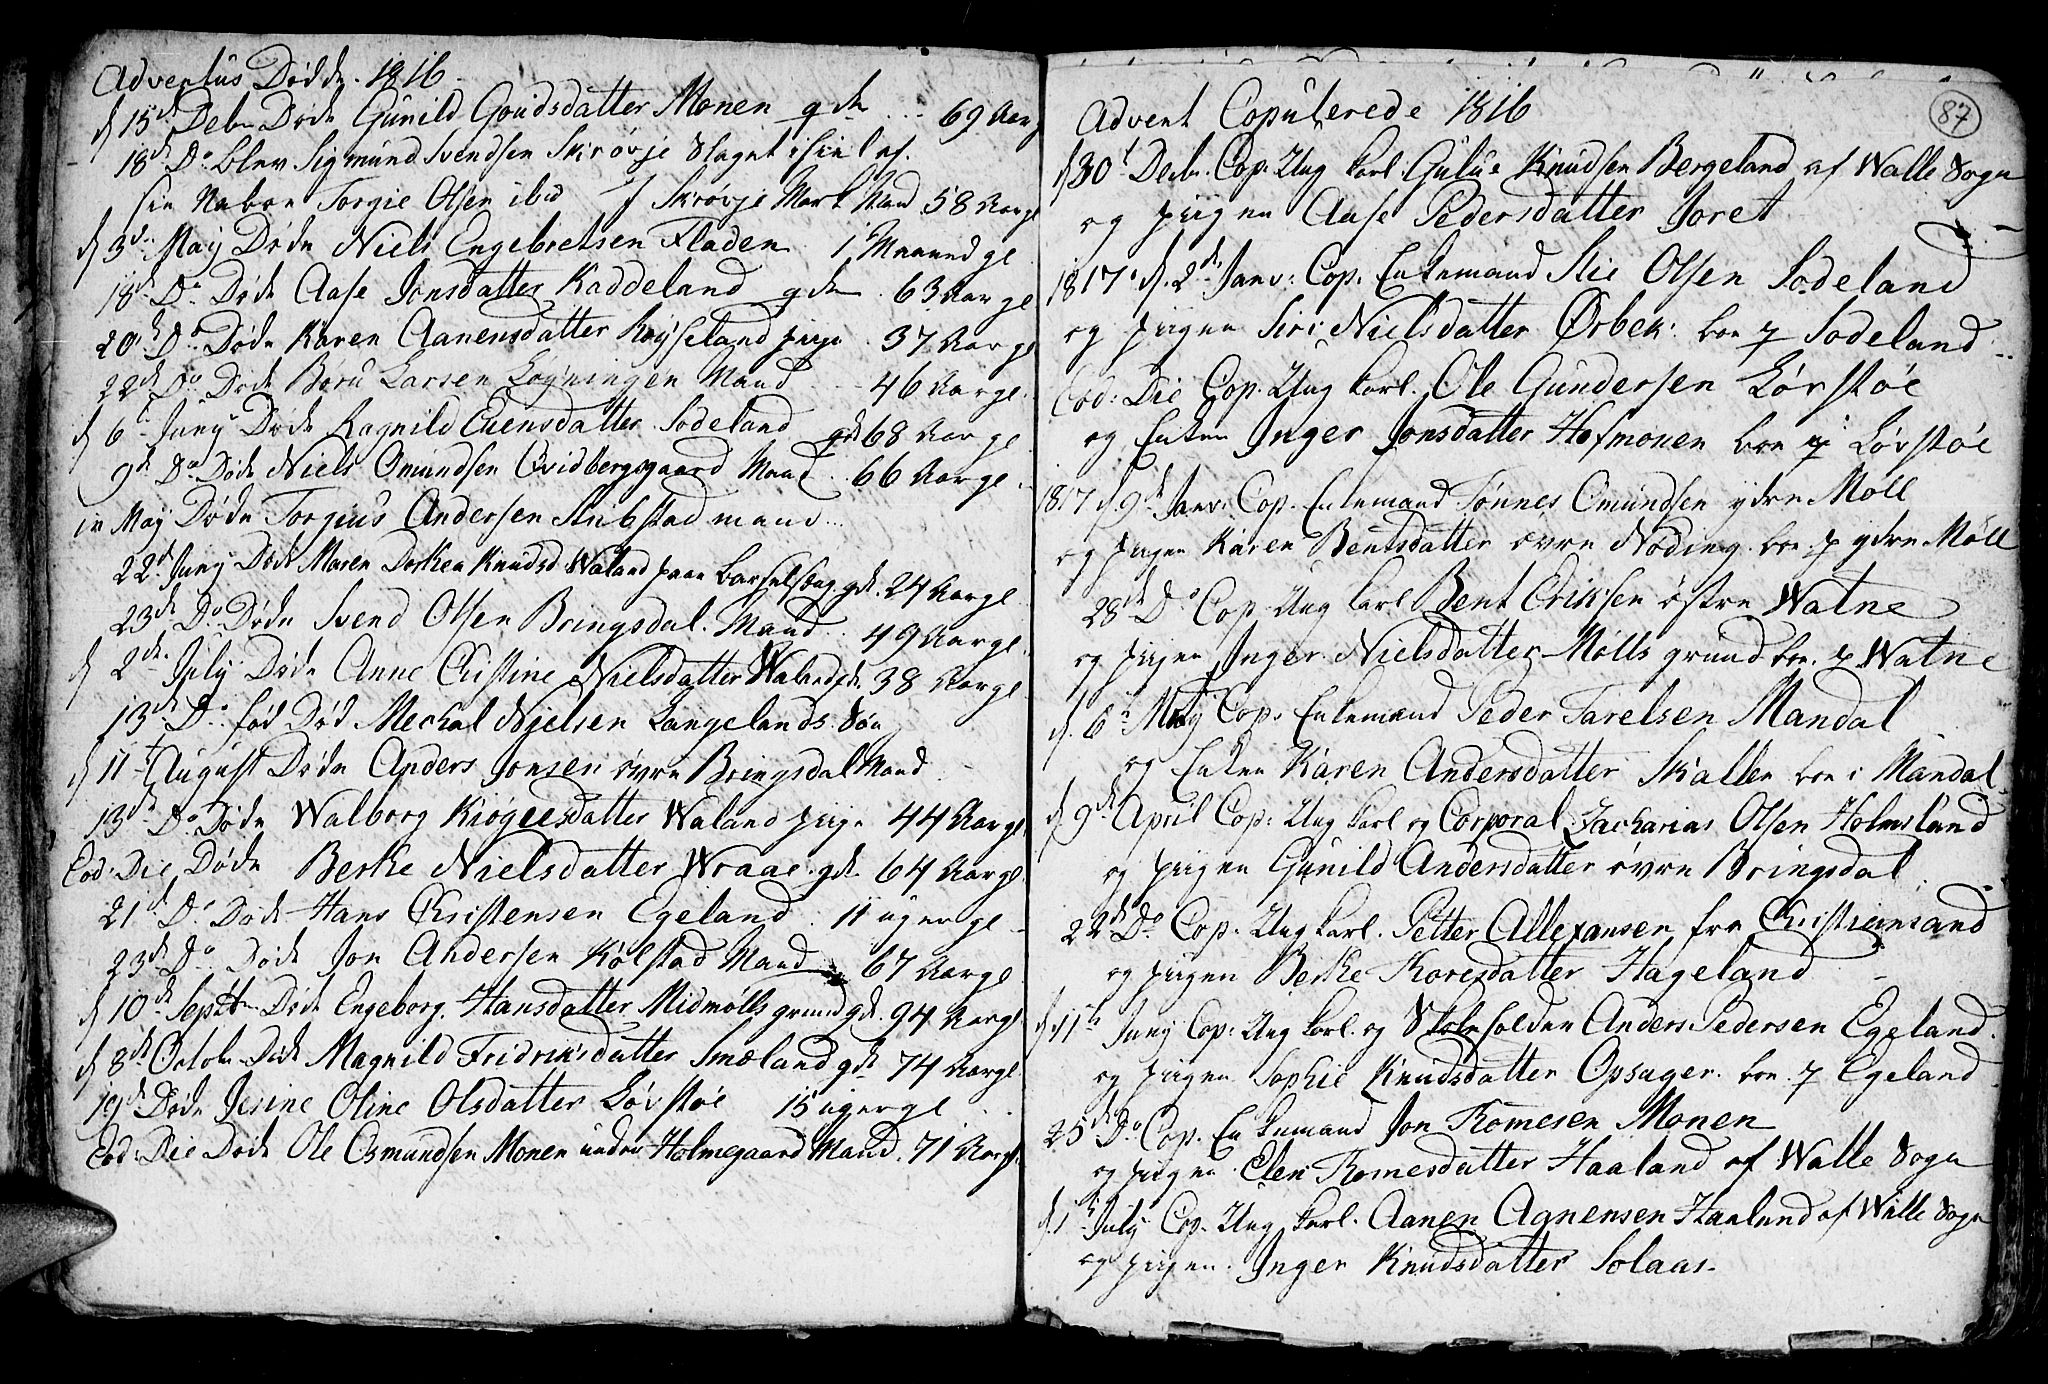 Adventus Døde. 1816.
d 15de Decbr Døde Gunild Goudsdatter Monen gdk ... 69 Aar g
18de Do blev Sigmund Svendsen Skrøvje slaget i hiel af.
sin Naboe Torgie Olsen ibid Skrøvje Mark Mand 58 Aar gl
d 3de May Døde Niels Engebretsen Fladen 1 Maaned gl
18de Do Døde Aase Jonsdatter Kaddeland gdk . 63 Aar gl
20de Do Døde Karen Aanensdatter Røysseland pige . 37 Aar gl
22de Do Døde Boru Larsen Løyningen Mand ... 46 Aar gl.
d 6te Juny Døde Ragnild Evensdatter Sodeland gdk 68 Aar gl
9de Do Døde Niels Omundsen Qvidbergsgaard Mand .. 66 Aar gl
in May Døde Torgius Andersen Stibstad mand ...
22de Juny Døde Maren Dorthea Knudsd Waland paa barselsæng gdk. 24 Aar gl
23de Do Døde Svend Olsen Bringsdal. Mand .. 49 Aar gl.
d 2de July Døde Anne Cristine Nielsdatter Waland gdk. 38 Aar gl
13de Do fød Død Mechal Nyelsen Langelands Søn
d 11te August Døde Anders Jonsen øvre Bringsdal Mand
13de Do Døde Walborg Kiøgeesdatter Waland pige 44 Aar gl.
Eod: Die Døde Berthe Nielsdatter Wraae. gdk 64 Aar gl
21de Do Døde Hans Christensen Egeland .. 11 uger gl
23de Do Døde Jon Andersen Kolstad Mand 67 Aar gl
d 10de Septbr Døde Engeborg Hansdatter Midmølls grund gdk. 94 Aar gl
d 8de Octobr Døde Magnild Fridriksdatter Smæland gdk 74 Aar gl
19de Døde Jesine Oline Olsdatter Løvstøe 15 uger gl
Eod: Die Døde Ole Osmundsen Monen under Holmegaard Mand. 71 Aar gl.
87
Advent Copulerede 1816
d 30te Decbr. Cop. Ung karl Gulue Knudsen Bergeland af Walle Sogn
og pigen Aase Pedersdatter Joret
1817. d. 2de Janv: Cop. Enkemand Stie Olsen Sodeland
og pigen Siri Nielsdatter Ørbek: boe p Sodeland
Eod: Die Cop. Ung karl. Ole Gundersen Løvstøe
og Enken Inger Jonsdatter Hofmonen boe p Løvstøe
1817 d 9de Janv: Cop. Enkemand Tønnes Omundsen ydre Møll
og pigen Karen Bentsdatter øvre Nøding boe p ydre Møll
28de Do Cop. Ung karl Bent Eriksen østre Watne
og pigen Inger Nielsdatter Mølls grund boe. p Watne
d. 6te May Cop. Enkemand Peder Tarelsen Mandal
og Enken Karen Andersdatter Skallen boe i Mandal
d 9de April Cop: Ung karl og Corporal Zacharias Olsen Holmsland
og pigen Gunild Andersdatter øvre Bringsdal
22de Do Cop. Ung karl. Petter Allexansen fra Christiansand
og pigen Berthe Thoresdatter Hageland
d 11te Juny Cop: Ung karl. og Skoleholder Anders Pedersen Egeland.
og pigen Sophie Knudsdatter Opsager. boe. p Egeland
25de Do Cop. Enkemand Jon Thomesen Monen
og pigen Elen Thomesdatter Haaland af Walle Sogn
d. 1te July Cop. Ung karl. Aanen Aanensen Haaland af Walle Sogn
og pigen. Inger Knudsdatter Solaas.